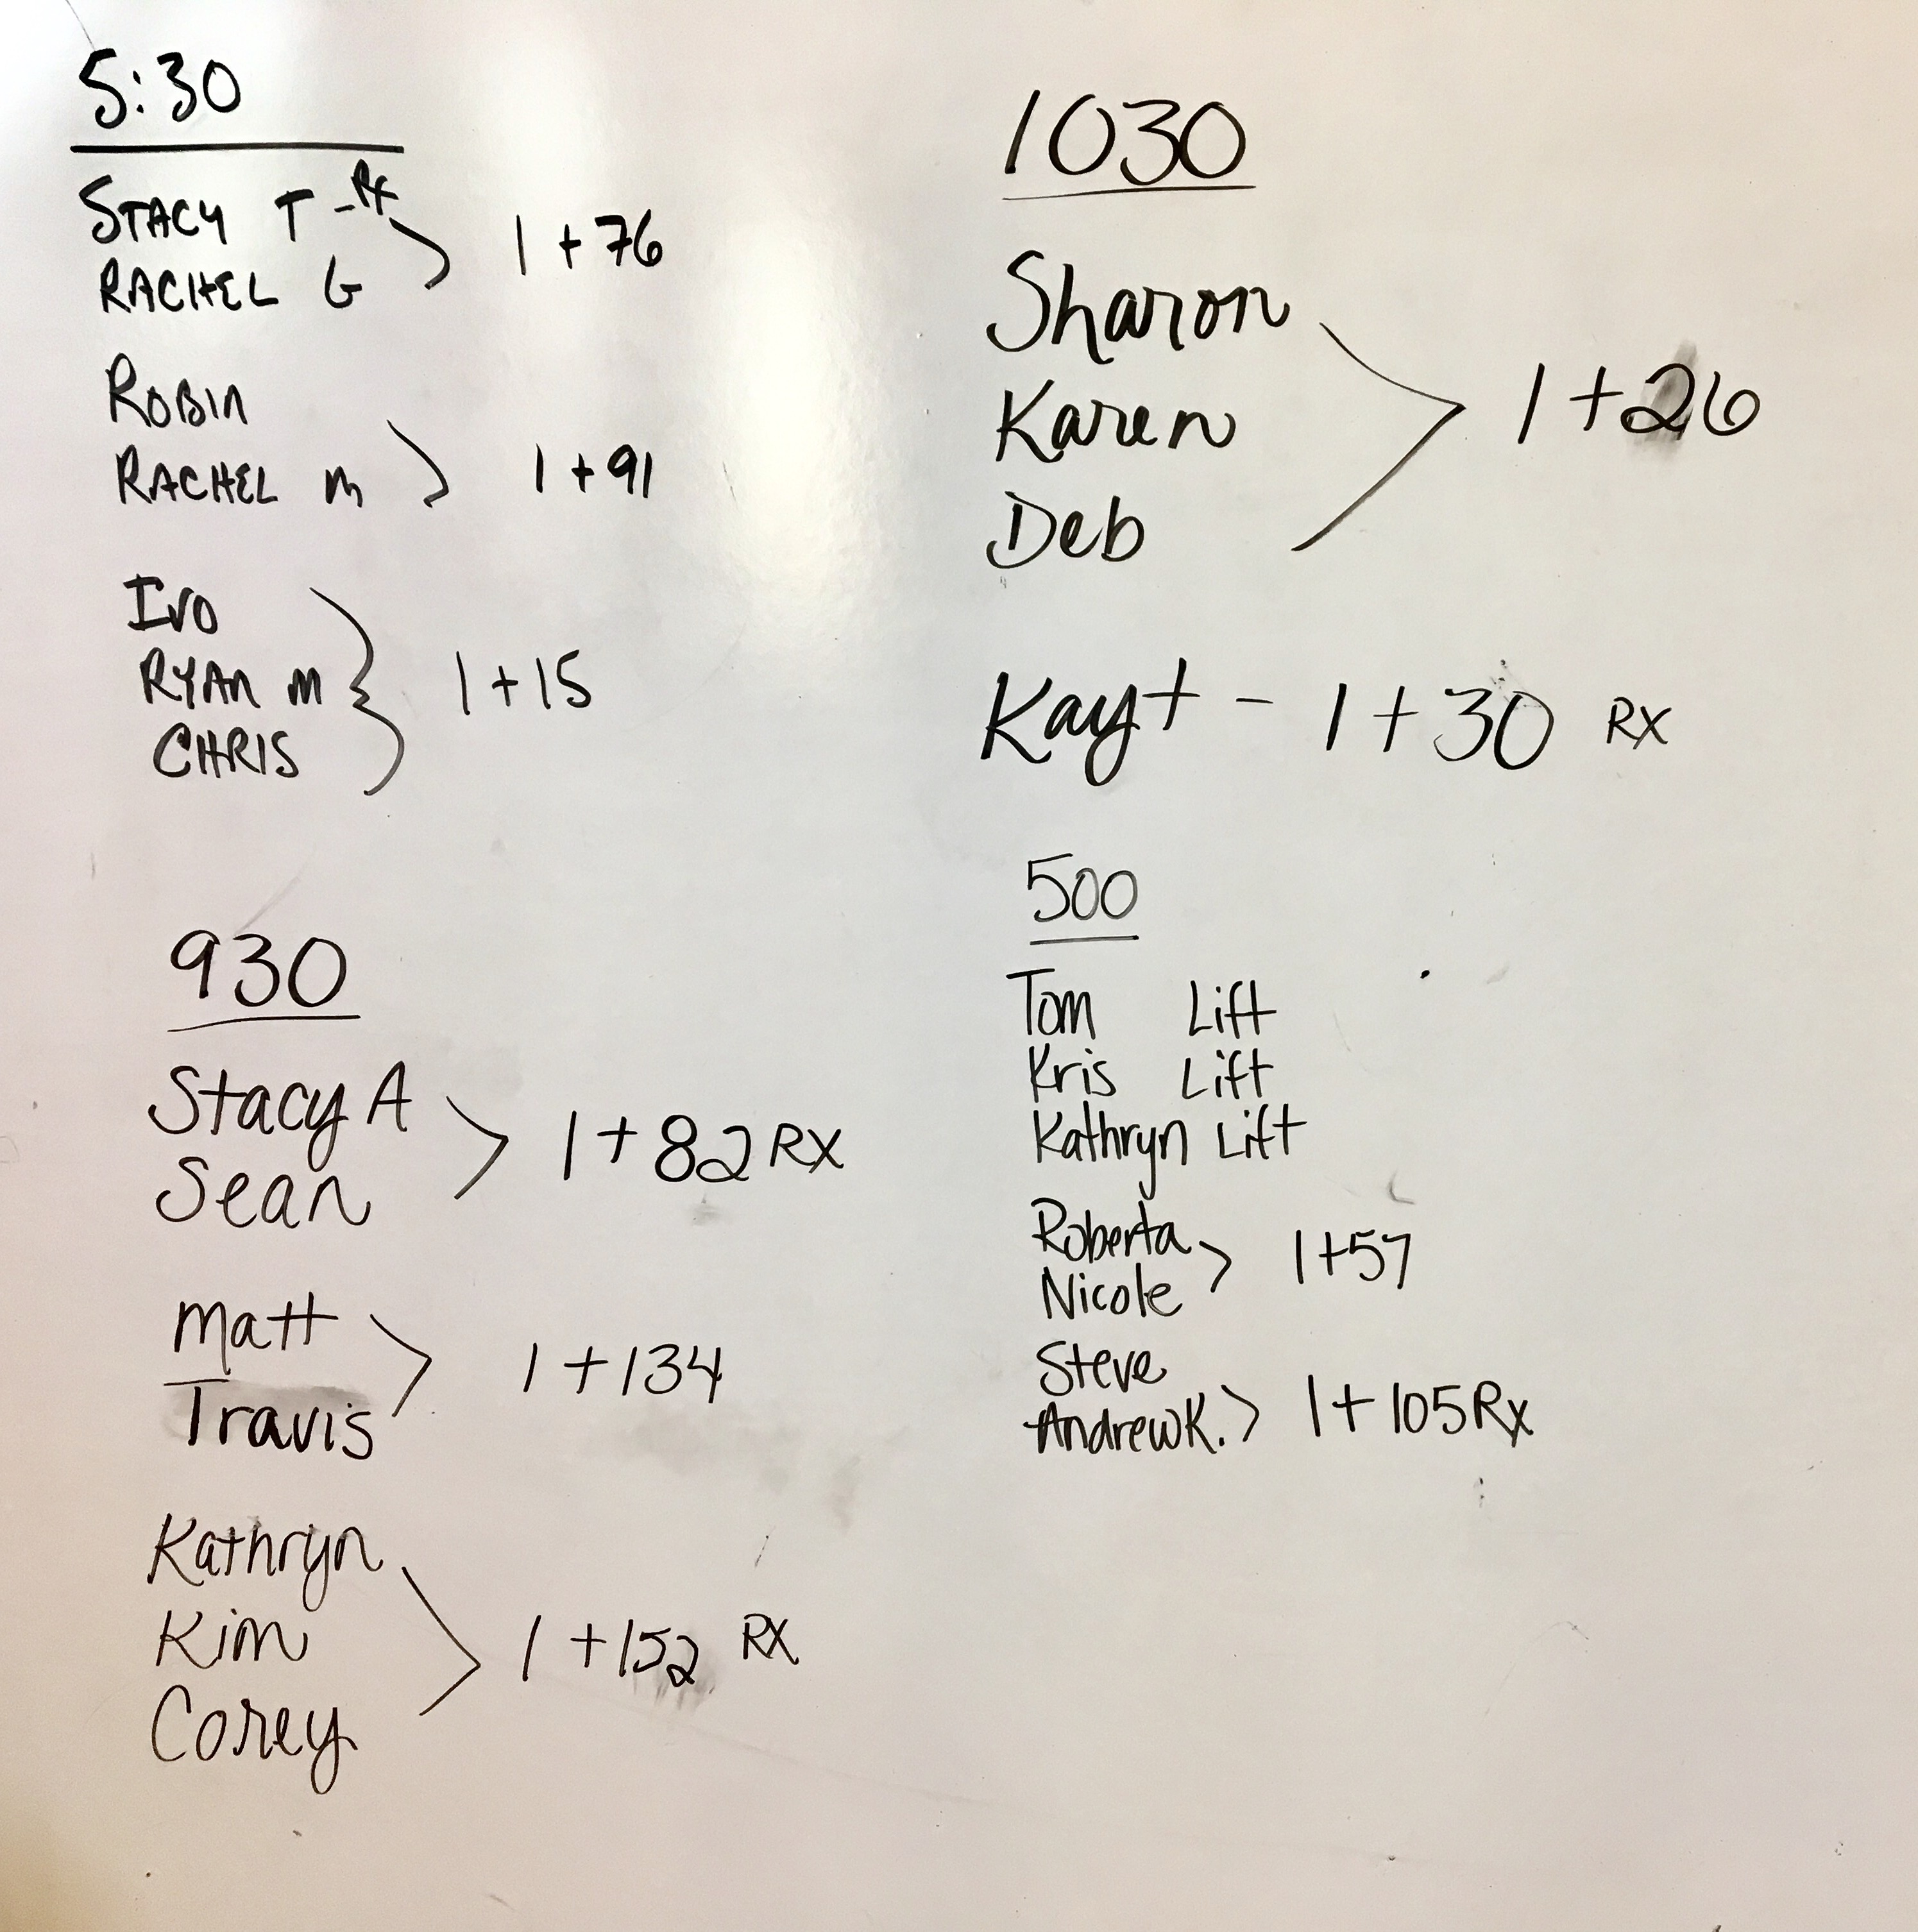 5:30
STACY T - Rx
RACHEL G
1 + 76
ROBIN
RACHEL M
1 + 91
IVO
RYAN M
CHRIS
1 + 15
930
Stacy A
Sean
1 + 82 RX
Matt
Travis
1 + 134
Kathryn
Kim
Corey
1 + 152 RX
1030
Sharon
Karen
Deb
1 + 26
Kayt - 1 + 30 RX
500
Tom Lift
Kris Lift
Kathryn Lift
Roberta
Nicole
1+57
Steve
Andrew K.
1+105 Rx